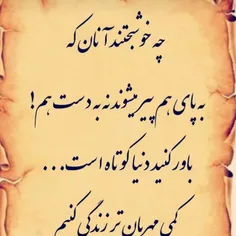 چه خوشبختند آنان که
به پای هم پیر میشوند نه به دست هم!
باور کنید دنیا کوتاه است...
کمی مهربان تر زندگی کنیم